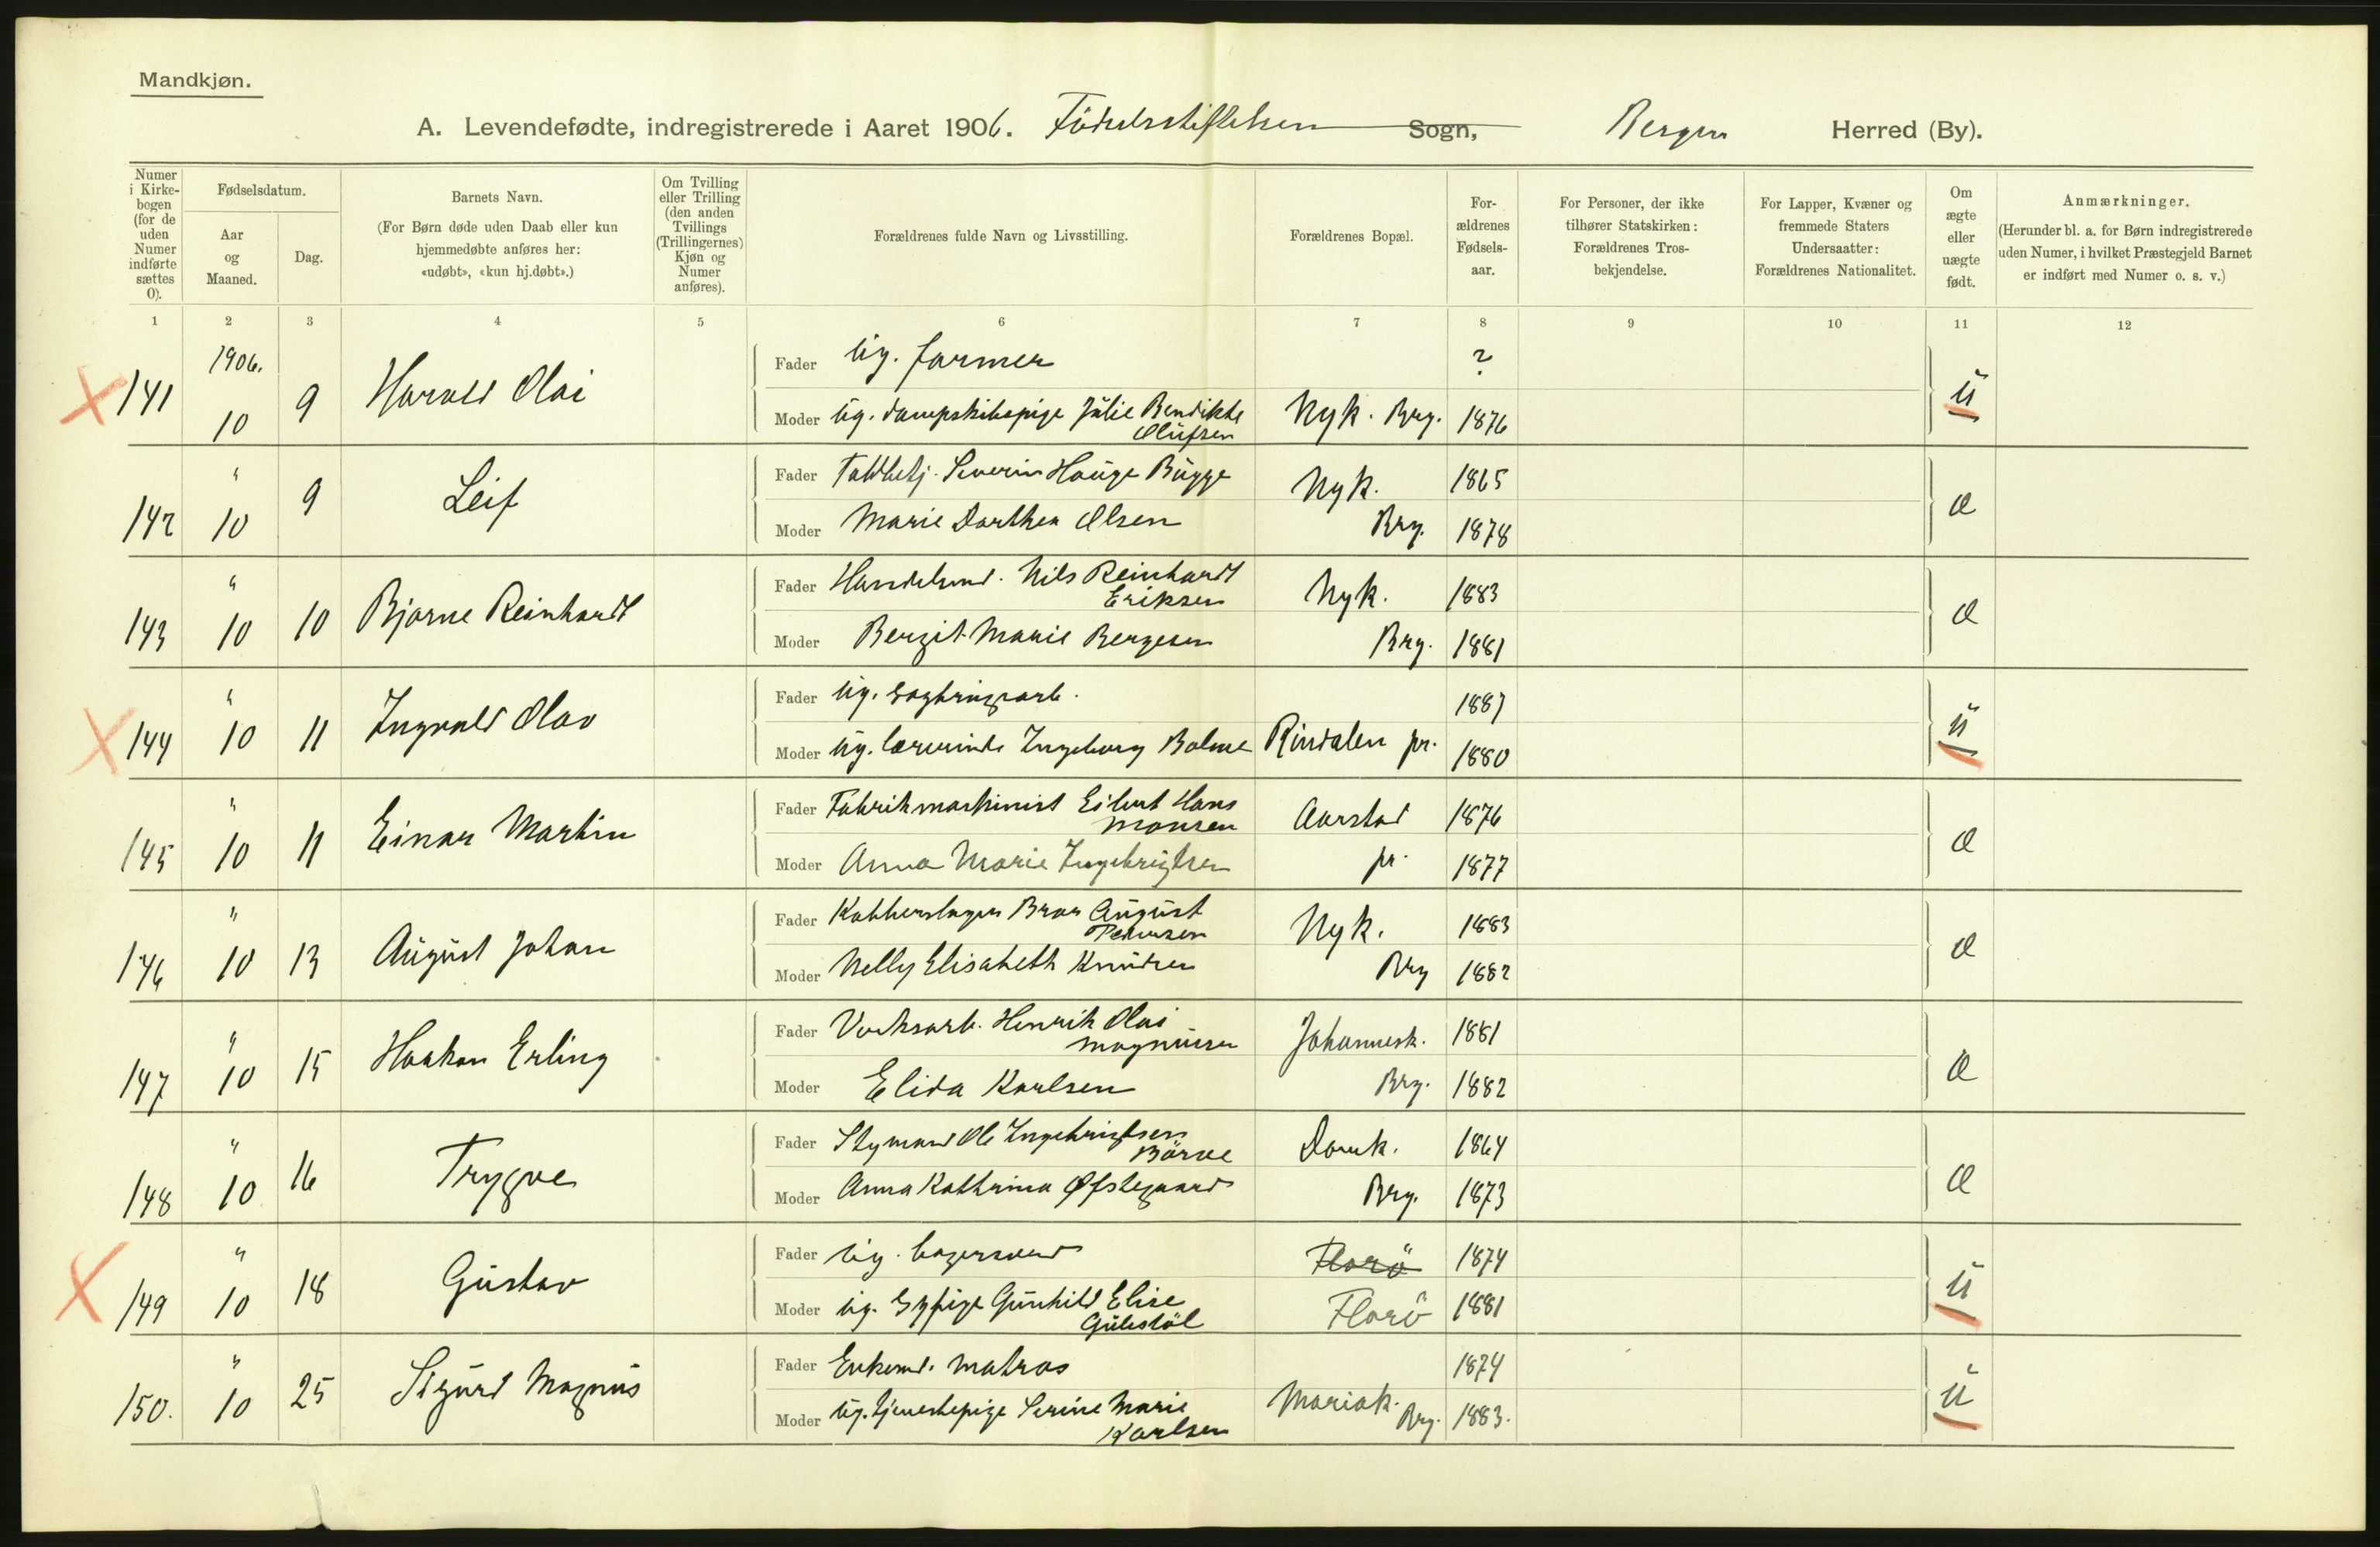 Mandkjøn.
A. Levendefødte, indregistrerede i Aaret 1906. Födselsstiftelsen Sogn, Bergen Herred (By).
Numer i Kirkebogen (for de uden Numer indførte sættes 0).
Fødselsdatum.
Aar og Maaned.
Dag.
Barnets Navn.
(For Børn døde uden Daab eller kun hjemmedøbte anføres her: «udøbt», «kun hj.døbt».)
Om Tvilling eller Trilling (den anden Tvillings (Trillingernes) Kjøn og Numer anføres).
Forældrenes fulde Navn og Livsstilling.
Forældrenes Bopæl.
Forældrenes Fødselsaar.
For Personer, der ikke tilhører Statskirken: Forældrenes Trosbekjendelse.
For Lapper, Kvæner og fremmede Staters Undersaatter: Forældrenes Nationalitet.
Om ægte eller uægte født.
Anmærkninger.
(Herunder bl. a. for Børn indregistrerede uden Numer, i hvilket Præstegjeld Barnet er indført med Numer o. s. v.)
1 2 3 4 5 6 7 8 9 10 11 12
1906.
141 10 9 Harald Olai
Fader Ug. farmer ?
Moder Ug. dampskibspige Julie Bendikte Olufsen Nyk. Brg. 1876 U
142 " 10 9 Leif
Fader Toldbetj. Severin Hauge Bugge Nyk. 1865
Moder Marie Dorthea Olsen Brg. 1878 Æ
143 " 10 10 Bjarne Reinhardt
Fader Handelsmd. Nils Reinhardt Eriksen Nyk. 1883
Moder Bergit Marie Bergesen Brg. 1881 Æ
144 " 10 11 Ingvald Olav
Fader Ug. 1887
Moder Ug. lærerinde Ingeborg Bolme Rindalen pr. 1880 U
145 " 10 11 Einar Martin
Fader Fabrikmaskinist Eilert Hans Monsen Aarstad 1876
Moder Anna Marie Ingebrigtsen pr. 1877 Æ
146 " 10 13 August Johan
Fader Kobberslager Brar August Pedersen Nyk. 1883
Moder Nelly Elisabeth Knudsen Brg 1882 Æ
147 " 10 15 Haakon Erling
Fader Verksarb. Henrik Olai Magnusen Johannesk. 1881
Moder Elida Karlsen Brg. 1882 Æ
148 " 10 16 Trygve
Fader Stymand Ole Ingebrigtsen Börve Domk. 1864
Moder Anna Kathrina Øfstegaard Brg. 1873 Æ
149 " 10 18 Gustav
Fader Ug. bagersvend Florö 1874
Moder Ug. Gunhild Elise Gulestöl Florö 1881 U
150. " 10 25 Sigurd Magnus
Fader Enkemd. matros 1874
Moder Ug. tjenestepige Serine Marie Karlsen Mariak. Brg. 1883. U